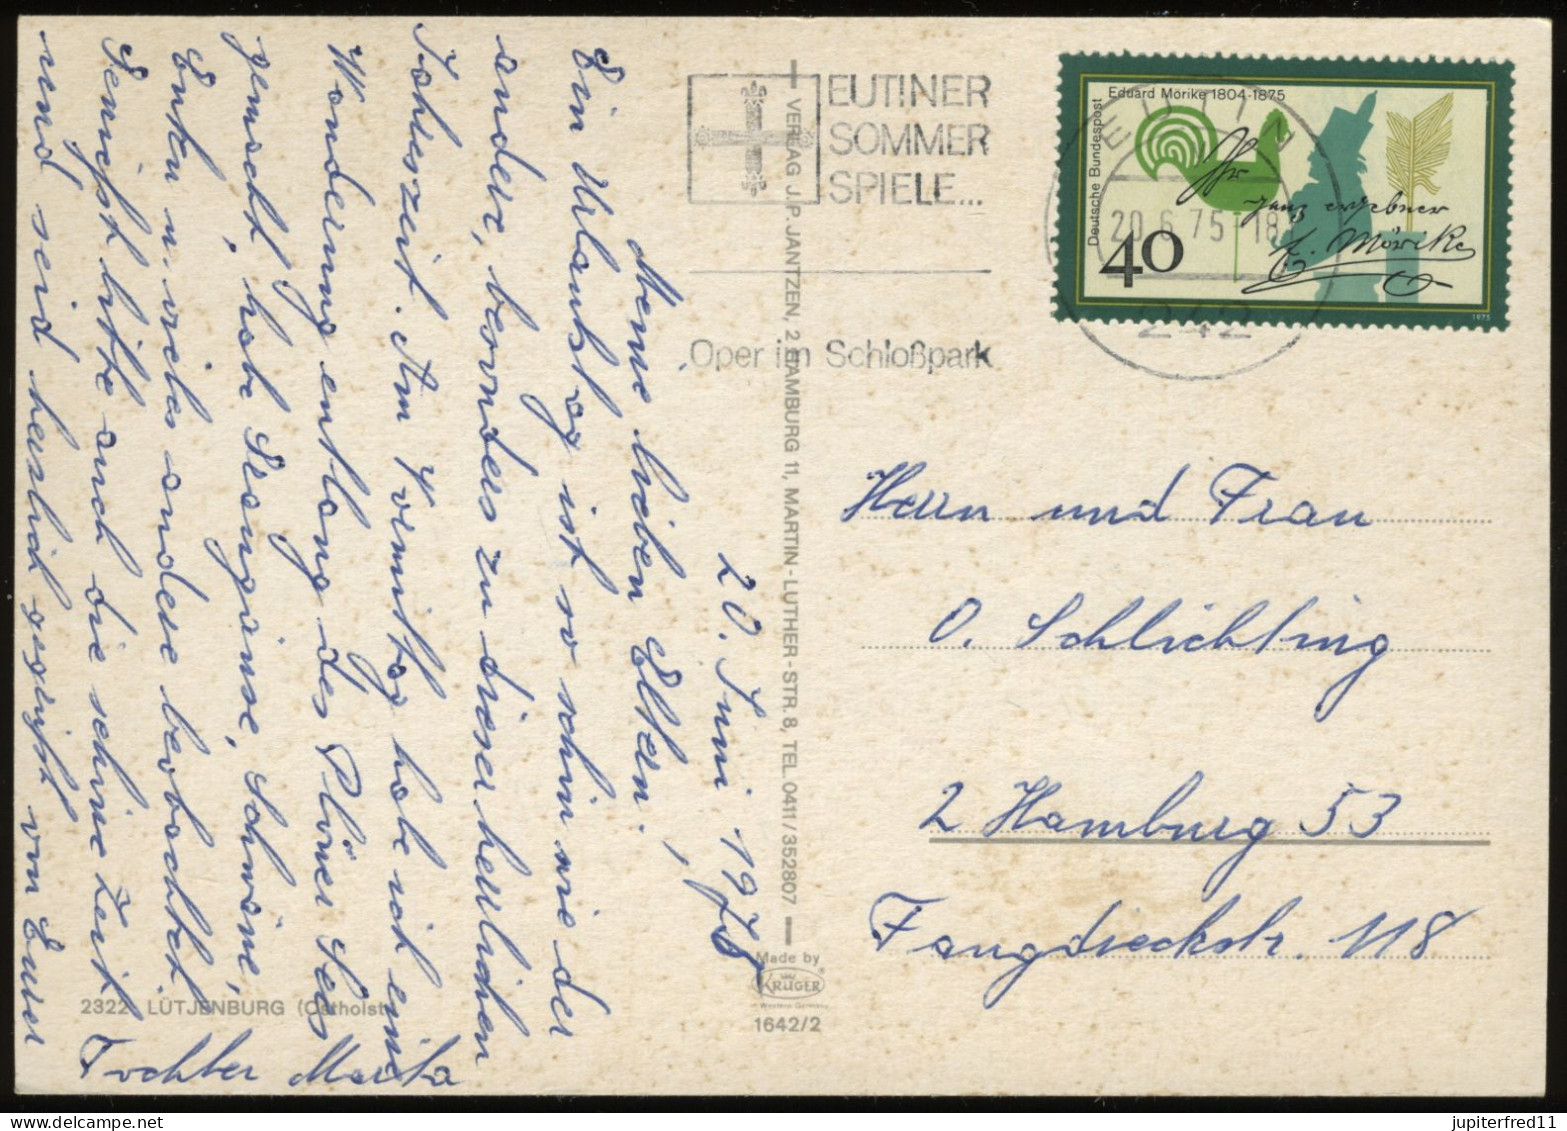 20. Juni 1975
Meine lieben Eltern,
Ein Urlaubstag ist so schön wie der
andere, besonders zu dieser herrlichen
Jahreszeit. Am Vormittag habe ich eine
Wanderung entlang des Plöner Sees
gemacht, habe Graugänse, Schwäne,
Enten u. vieles andere beobachtet.
Genießt bitte auch die schöne Zeit
und seid herzlich gegrüßt von Eurer
Tochter Marita
2322 LÜTJENBURG (Ostholst.)
VERLAG J.P. JANTZEN, 2 HAMBURG 11, MARTIN-LUTHER-STR. 8, TEL. 0411/352807
Made by
KRÜGER
Western Germany
1642/2
EUTINER
SOMMER
SPIELE...
Oper im Schloßpark
EUTIN
20.6.75-18
242
Eduard Mörike 1804-1875
Deutsche Bundespost
40
Ihr
ganz ergebner
E. Mörike
1975
Herrn und Frau
O. Schlichting
2 Hamburg 53
Fangdieckstr. 118
jupiterfred11